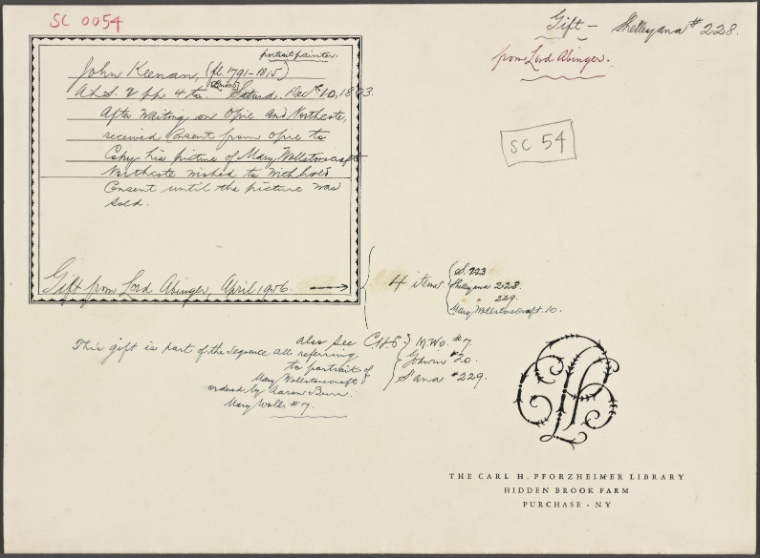 SC 0054
Gift – Shelleyana # 228.
from Lord Abinger.
portrait painter.
John Keenan, (fl. 1791-1815)
A.L.S. 2 pp. 4 to. Saturd Dec 10, 1803.
After waiting on Opie and Northcote,
received Consent from Opie to
Copy his picture of Mary Wollstonecraft
Northcote wished to withhold
Consent until the picture was
sold.
SC 54
Gift from Lord Abinger, April 1956. →
4 items
S. 223
Shelleyana 228.
" 229.
Mary Wollstonecraft. 10.
also see C.H.P. M.Wo. #7.
Godwin #20.
S'ana #229.
This gift is part of the sequence all referring
to portrait of
Mary Wollstonecraft
ordered by Aaron Burr.
Mary Wolls #7.
THE CARL H. PFORZHEIMER LIBRARY
HIDDEN BROOK FARM
PURCHASE · NY